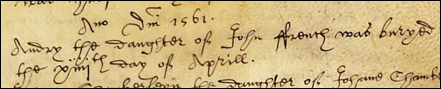 Ano Dm 1561.
Andry the daughter of John ffrench was buryed
the xiiiith day of Aprill.
the daughter of Johane Chambe